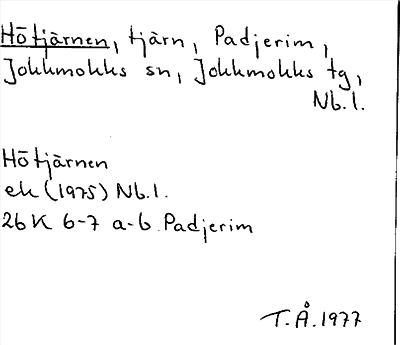 Hötjärnen, tjärn, Padjerim,
Jokkmokks sn, Jokkmokks tg,
Nb.l.
Hötjärnen
ek (1975) Nb.l.
26 K 6-7 a-b Padjerim
T.Å.1977